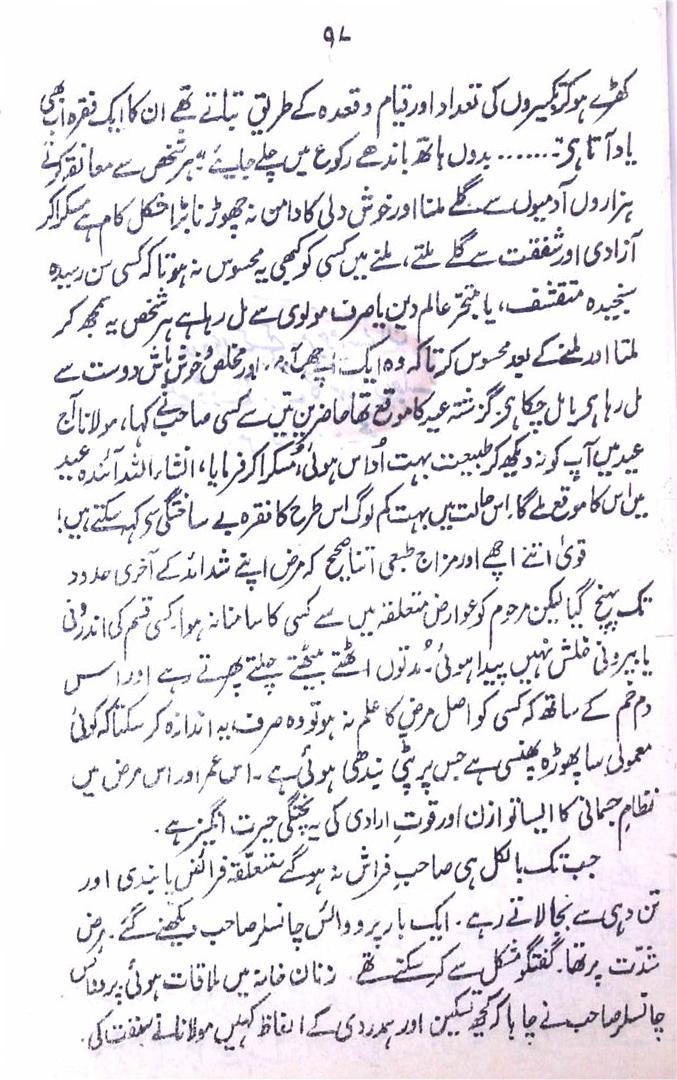 ۹۷
کھڑے ہوکر تکبیروں کی تعداد اور قیام و قعدہ کے طریق بتلاتے تھے ان کا ایک فقرہ اب بھی
یاد آتا ہی۔....... بدوں ہاتھ باندھے رکوع میں چلے جایئے۔ ہر شخص سے معانقہ کرتے
ہزاروں آدمیوں سے گلے ملنا اور خوش دلی کا دامن نہ چھوڑنا بڑا مشکل کام ہے مسکرا کر
آزادی اور شفقت سے گلے ملتے، ملنے میں کسی کو کبھی یہ محسوس نہ ہوتا کہ کسی سن رسیدہ
سنجیدہ متقشف، یا متبحر عالم دین یا صرف مولوی سے مل رہا ہے ہر شخص یہ سمجھ کر
ملتا اور ملنے کے بعد محسوس کرتا کہ وہ ایک اچھے آدمی اور مخلص خوش باش دوست سے
مل رہا ہی یا مل چکا ہی۔ گزشتہ عید کا موقع تھا حاضرین میں سے کسی صاحب نے کہا، مولانا آج
عید میں آپ کو نہ دیکھ کر طبیعت بہت اُداس ہوئی، مُسکرا کر فرمایا، انشاء اللہ آئندہ عید
میں اس کا موقع ملے گا۔ اس حالت میں بہت کم لوگ اس طرح کا فقرہ بے ساختگی سی کہہ سکتے ہیں!
قویٰ اتنے اچھے اور مزاج طبعی اتنا صحیح کہ مرض اپنے شدائد کے آخری حدود
تک پہنچ گیا لیکن مرحوم کو عوارض متعلقہ میں سے کسی کا سامنا نہ ہوا۔ کسی قسم کی اندرونی
یا بیرونی خلش نہیں پیدا ہوئی۔ مُدتوں اٹھتے بیٹھتے چلتے پھرتے رہے اور اس
دم خم کے ساتھ کہ کسی کو اصل مرض کا علم نہ ہو تو وہ صرف یہ اندازہ کر سکتا کہ کوئی
معمولی سا پھوڑہ پھنسی ہے جس پر پٹی بندھی ہوئی ہے۔ اس عمر اور اس مرض میں
نظامِ جسمانی کا ایسا توازن اور قوتِ ارادی کی یہ پختگی حیرت انگیز ہے۔
جب تک بالکل ہی صاحبِ فراش نہ ہوگئے متعلقہ فرائض پابندی اور
تن دہی سے بجا لاتے رہے۔ ایک بار پرو وائس چانسلر صاحب دیکھنے گئے۔ مرض
شدّت پر تھا۔ گفتگو مشکل سے کر سکتے تھے۔ زنان خانہ میں ملاقات ہوئی پرو وائس
چانسلر صاحب نے چاہا کہ کچھ تسکین اور ہمدردی کے الفاظ کہیں مولانا نے سبقت کی۔